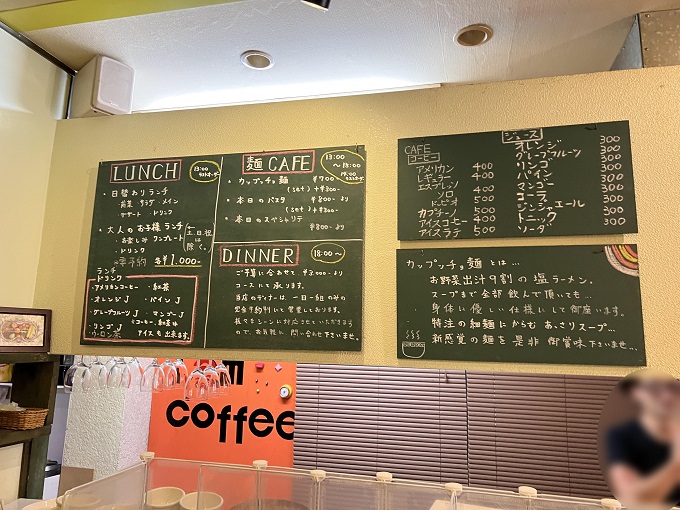 LUNCH
13:00
ラストオーダー
・日替わりランチ
前菜・サラダ・メイン
デザート・ドリンク
・大人のお子様ランチ
・お楽しみワンプレート
・ドリンク
土、日、祝
は
除く。
※要予約 各¥1,000-
ランチ
ドリンク
・アメリカンコーヒー・紅茶
・オレンジJ ・パインJ
・グレープフルーツJ ・マンゴーJ
・リンゴJ
・ウーロン茶
※コーヒー、紅茶は
アイスも出来ます。
麺 CAFE
13:00
〜15:00
・カップッチョ麺 ¥700-
(set)+¥300-
・本日のパスタ ¥800-より
(set)+¥300-
・本日のスペシャリテ
¥800-より
DINNER
18:00〜
ご予算に合わせて¥3,000-より
コースにて承ります。
当店のディナーは一日一組のみの
完全予約制にて営業しております。
様々なシーンに対応させていただきます
ので、お気軽に問い合わせ下さいませ。
CAFE
コーヒー
アメリカン 400
レギュラー 400
エスプレッソ
ソロ 400
ドッピオ 500
カプチーノ 500
アイスコーヒー 400
アイスラテ 500
ジュース
オレンジ 300
グレープフルーツ 300
リンゴ 300
パイン 300
マンゴー 300
コーラ 300
ジンジャエール 300
トニック 300
ソーダ 300
カップッチョ麺とは…
お野菜出汁9割の塩ラーメン。
スープまで全部飲んで頂いても…
身体に優しい仕様にして御座います。
特注の細麺にからむあさりスープ…
新感覚の麺を是非御賞味下さいませ…
coffee